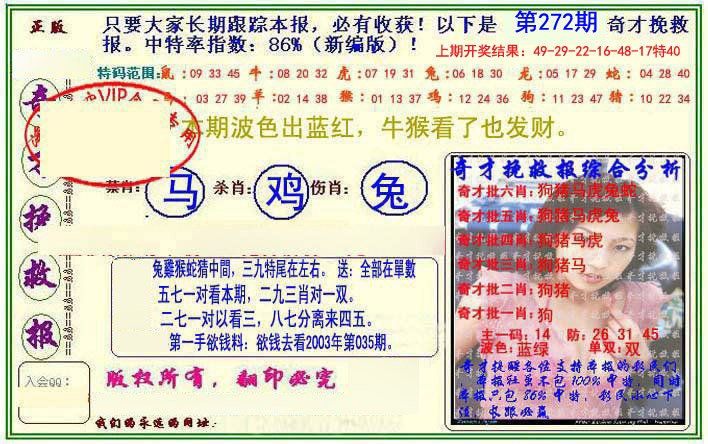 正版
只要大家长期跟踪本报，必有收获！以下是 第272期 奇才挽救
报。中特率指数：86%（新编版）！
上期开奖结果：49-29-22-16-48-17特40
特码范围：鼠：09 33 45 牛：08 20 32 虎：07 19 31 兔：06 18 30 龙：05 17 29 蛇：04 28 40
03 27 39 羊：02 14 38 猴：01 13 37 鸡：12 24 36 狗：11 23 47 猪：10 22 34
VIP
本期波色出蓝红，牛猴看了也发财。
禁肖：马 杀肖：鸡 伤肖：兔
奇
挽
救
报
兔雞猴蛇猜中間，三九特尾在左右。 送：全部在單數
五七一对看本期，二九三肖对一双。
二七一对以看三，八七分离来四五。
第一手欲钱料：欲钱去看2003年第035期。
版权所有，翻印必究
入会QQ：
我们的永远的网址：
奇才挽救报综合分析
奇才批六肖：狗猪马虎兔蛇
奇才批五肖：狗猪马虎兔
奇才批四肖：狗猪马虎
奇才批三肖：狗猪马
奇才批二肖：狗猪
奇才批一肖：狗
主一码：14 防：26 31 45
波色：蓝绿 单双：双
奇才挽救各位支持本报的彩民们
，本报社虽不包100%中特，同时
本报只包86%中特，彩民小心下
注，长跟必赢